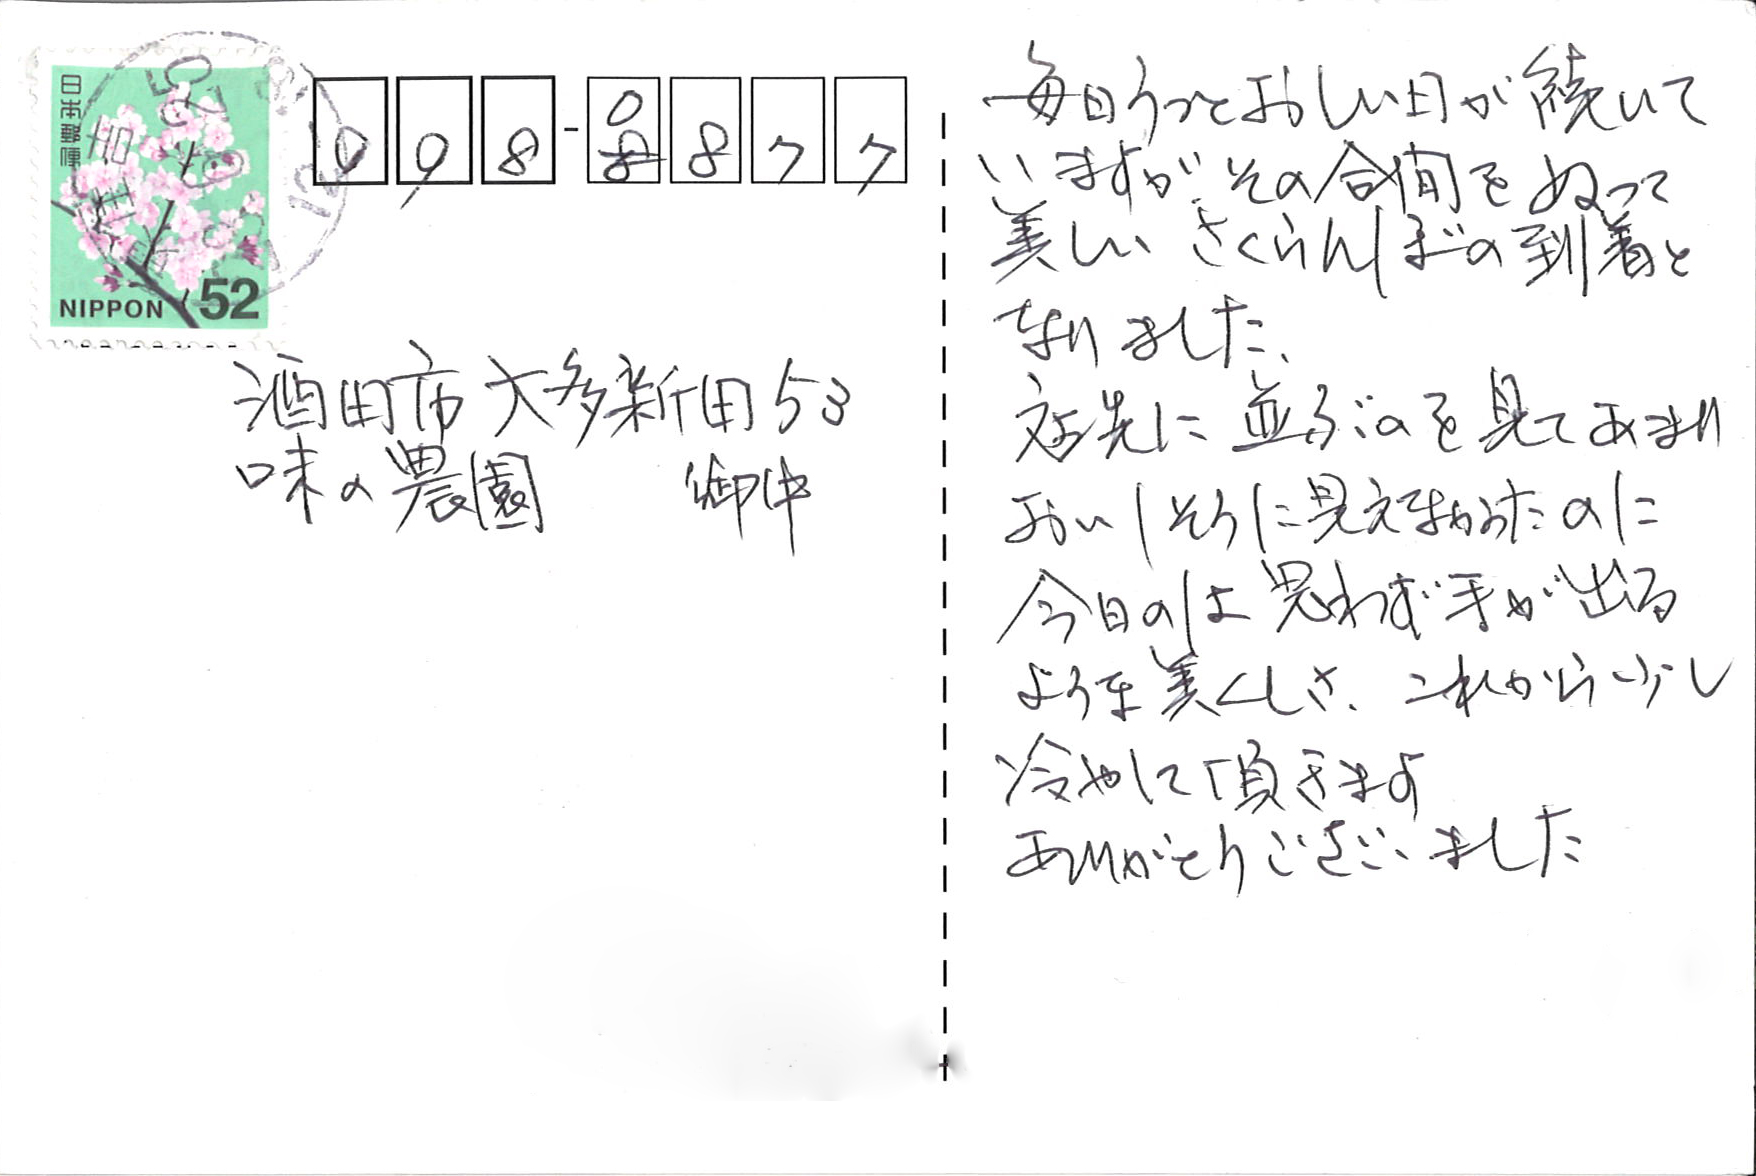 日本郵便
NIPPON 52
998-0877
酒田市大多新田53
味の農園 御中
毎日うっとおしい日が続いて
いますが、その合間をぬって
美しいさくらんぼの到着と
なりました、
店先に並ぶのを見てあまり
おいしそうに見えなかったのに
今日のは思わず手が出る
ような美くしさ、これから少し
冷やして頂きます
ありがとうございました